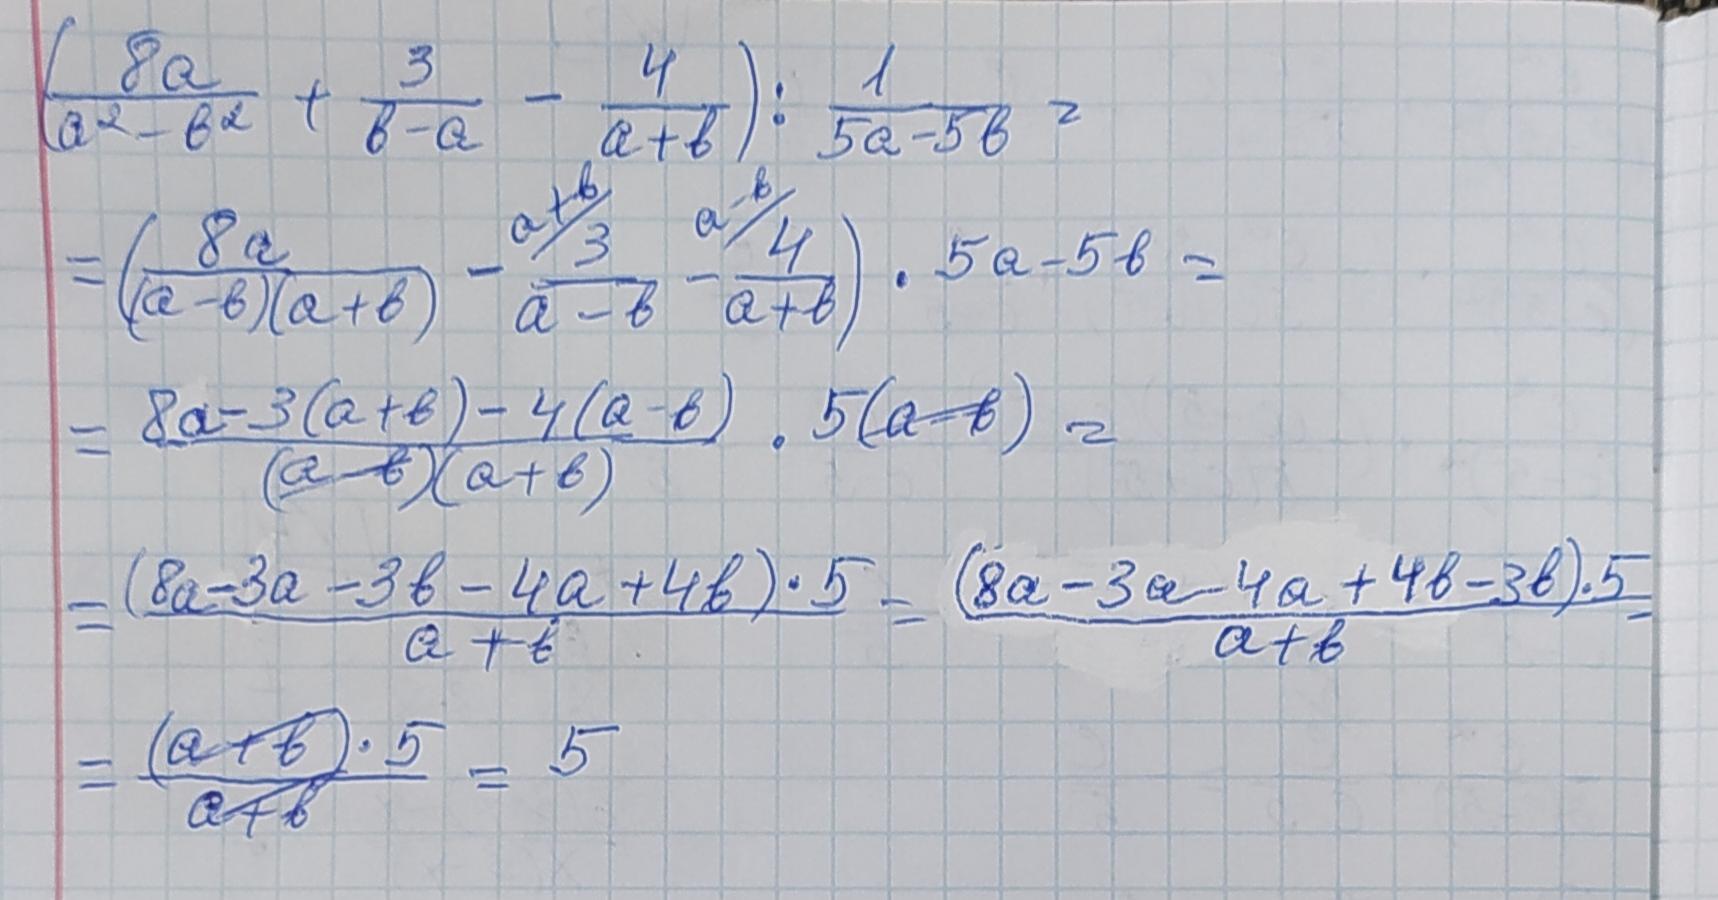 (8a/(a²-b²) + 3/(b-a) - 4/(a+b)) : 1/(5a-5b) =
= (8a/((a-b)(a+b)) - a+b/ 3/(a-b) - a-b/ 4/(a+b)) · 5a-5b =
= (8a-3(a+b)-4(a-b))/((a-b)(a+b)) · 5(a-b) =
= ((8a-3a-3b-4a+4b)·5)/(a+b) = ((8a-3a-4a+4b-3b)·5)/(a+b) =
= ((a+b)·5)/(a+b) = 5